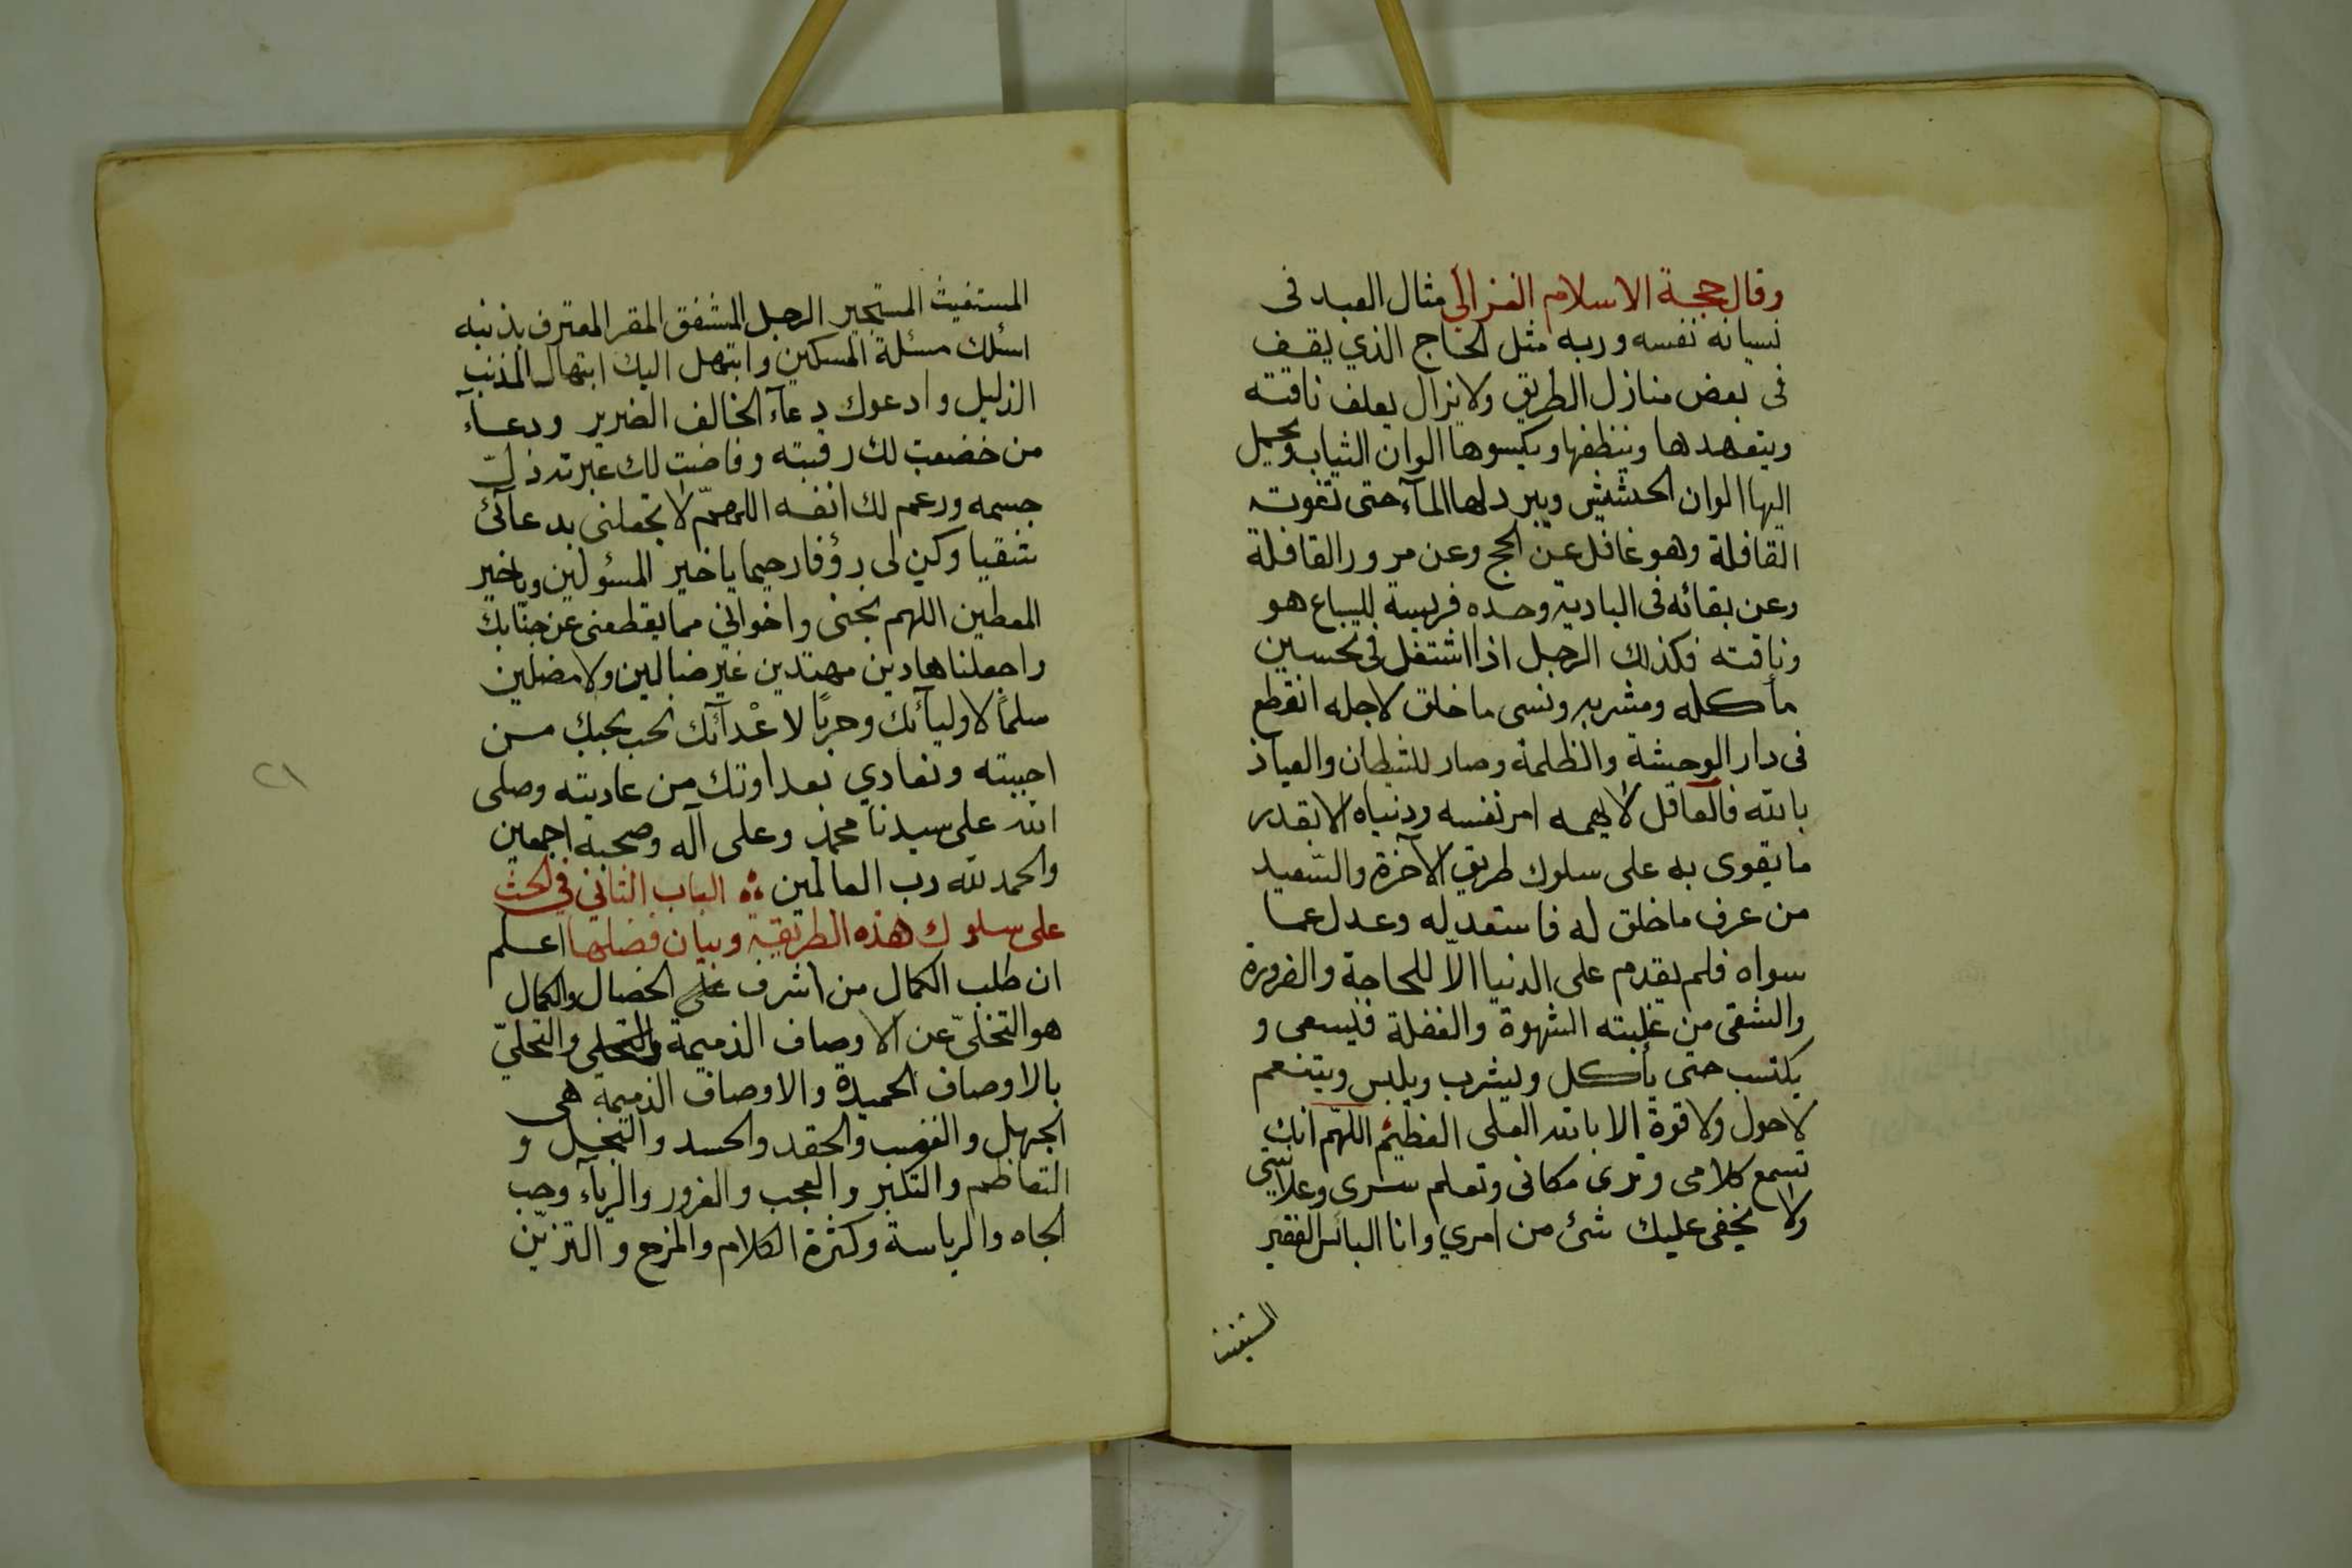 وقال حجة الاسلام الغزالي مثال العبد فى
نسيانه نفسه وربه مثل الحاج الذي يقف
فى بعض منازل الطريق ولا يزال يعلف ناقته
ويتعهدها وينظفها ويكسوها الوان الثياب ويحمل
اليها الوان الحشيش ويبرد لها المآء حتى تفوته
القافلة وهو غافل عن الحج وعن مرور القافلة
وعن بقائه فى البادية وحده فريسة للسباع هو
وناقته فكذلك الرجل اذا اشتغل فى تحسين
مأكله ومشربه ونسى ما خلق لاجله انقطع
فى دار الوحشة والظلمة وصار للشيطان والعياذ
بالله فالعاقل لا يهمه امر نفسه ودنياه الا بقدر
ما يقوى به على سلوك طريق الآخرة والسعيد
من عرف ما خلق له فاستعد له وعدل عما
سواه فلم يقدم على الدنيا الاّ للحاجة والضرورة
والشقى من غلبته الشهوة والغفلة فيسعى و
يكتسب حتى يأكل ويشرب ويلبس ويتنعم
لا حول ولا قوة الا بالله العلى العظيم اللهم انك
تسمع كلامى وترى مكانى وتعلم سرى وعلانيتى
ولا يخفى عليك شئ من امري وانا البائس الفقير
المستغيث
المستغيث المستجير الوجل المشفق المقر المعترف بذنبه
اسئلك مسئلة المسكين وابتهل اليك ابتهال المذنب
الذليل وادعوك دعآء الخائف الضرير ودعآء
من خضعت لك رقبته وفاضت لك عبرته ذلّ
جسمه ورغم لك انفه اللهمّ لا تجعلنى بدعآئك
شقيا وكن لى رؤفا رحيما يا خير المسئولين ويا خير
المعطين اللهم نجنى واخواني مما يقطعنى عن جنابك
واجعلنا هادين مهتدين غير ضالين ولا مضلين
سلماً لاوليآئك وحرباً لاعْدآئك نحب بحبك من
احببته ونعادي بعداوتك من عاديته وصلى
الله على سيدنا محمد وعلى آله وصحبه اجمعين
والحمد لله رب العالمين ؞ الباب الثاني في الحث
على سلوك هذه الطريقة وبيان فضلها اعلم
ان طلب الكمال من اشرف الخصال والكمال
هو التخلىّ عن الاوصاف الذميمة والتحلى والتحليّ
بالاوصاف الحميدة والاوصاف الذميمة هى
الجهل والغضب والحقد والحسد والبخل و
التعاظم والتكبر والعجب والغرور والريآء وحب
الجاه والرياسة وكثرة الكلام والمزح والتزيّن
٢١